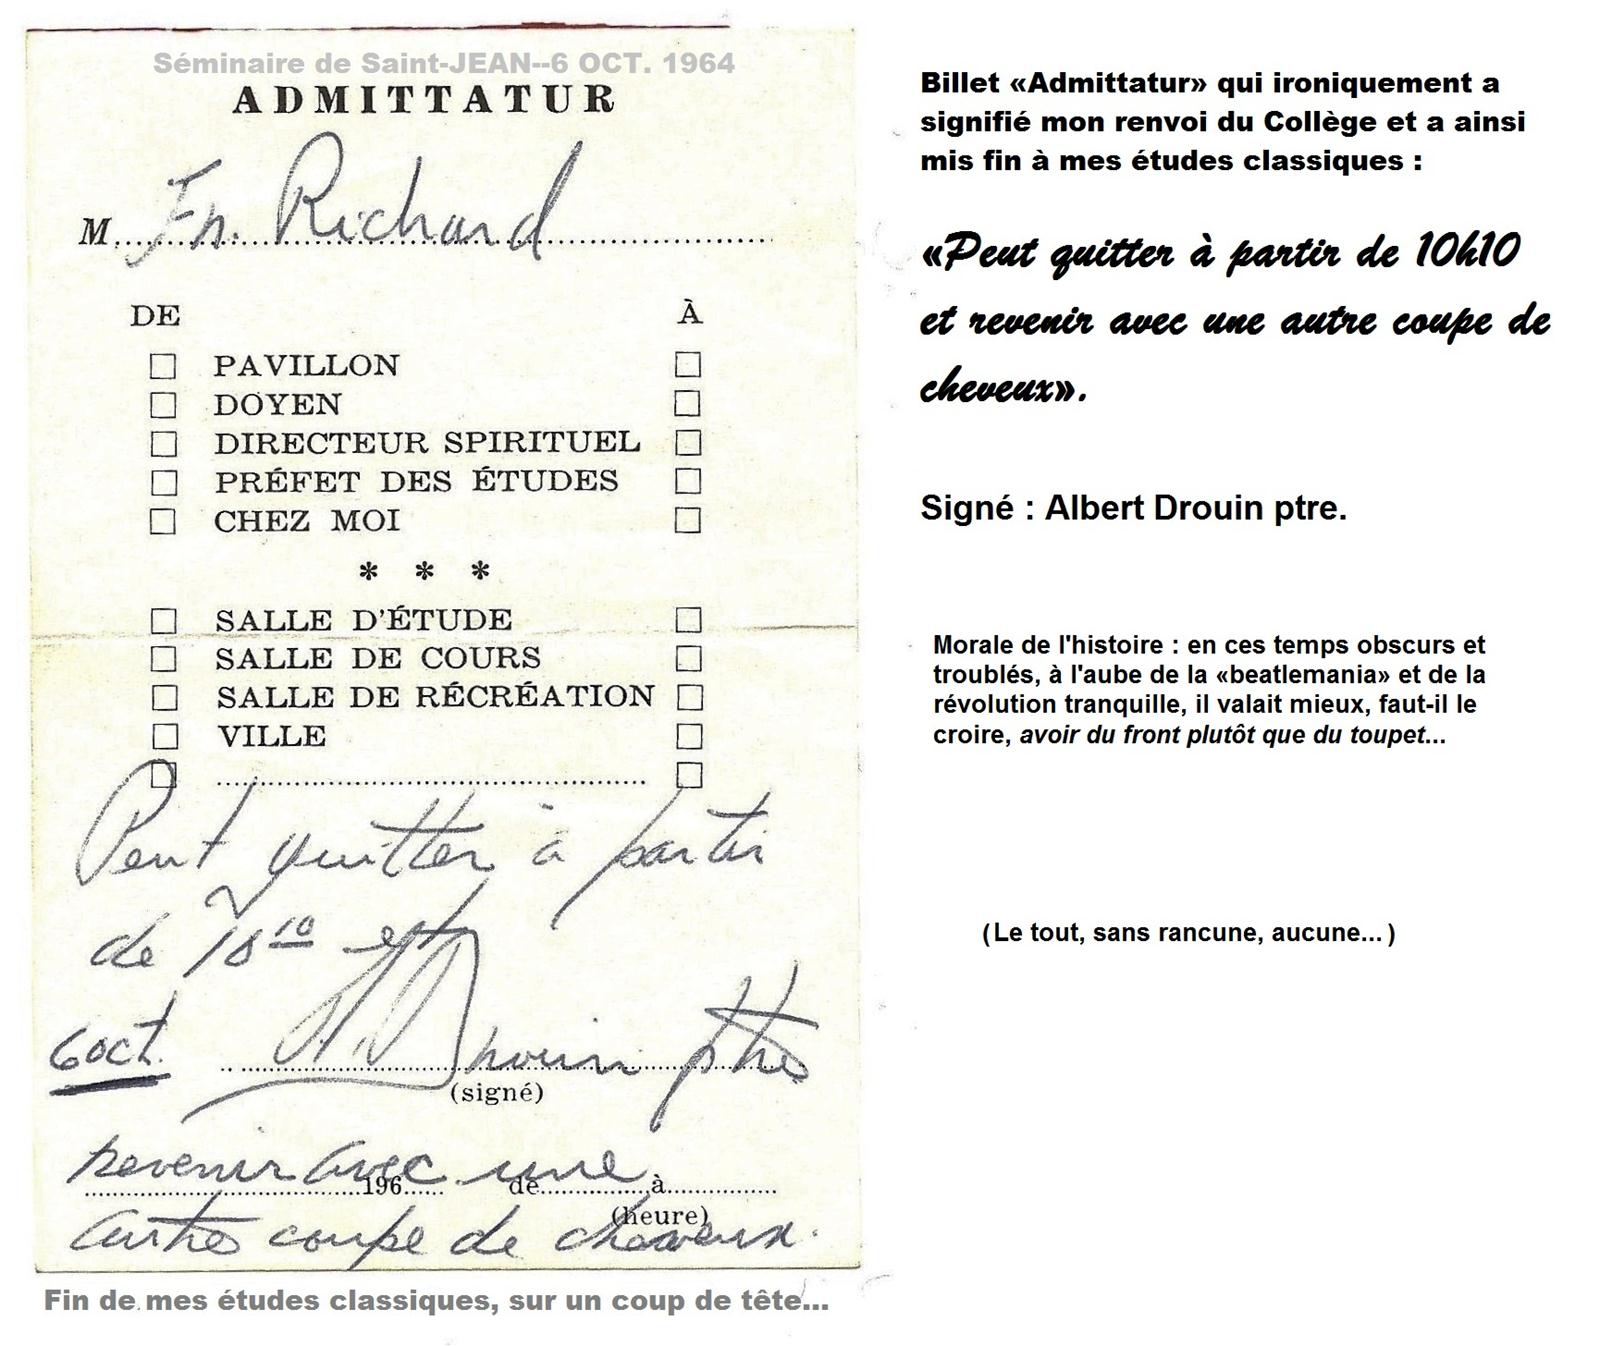 Séminaire de Saint-JEAN--6 OCT. 1964
ADMITTATUR
M. Fr. Richard
DE À
PAVILLON
DOYEN
DIRECTEUR SPIRITUEL
PRÉFET DES ÉTUDES
CHEZ MOI
* * *
SALLE D'ÉTUDE
SALLE DE COURS
SALLE DE RÉCRÉATION
VILLE
Peut quitter à partir
de 10 10 et
6 oct. A. Drouin ptre
(signé)
revenir avec une
196 de à
(heure)
autre coupe de cheveux.
Fin de mes études classiques, sur un coup de tête...
Billet «Admittatur» qui ironiquement a
signifié mon renvoi du Collège et a ainsi
mis fin à mes études classiques :
«Peut quitter à partir de 10h10
et revenir avec une autre coupe de
cheveux».
Signé : Albert Drouin ptre.
Morale de l'histoire : en ces temps obscurs et
troublés, à l'aube de la «beatlemania» et de la
révolution tranquille, il valait mieux, faut-il le
croire, avoir du front plutôt que du toupet...
(Le tout, sans rancune, aucune...)